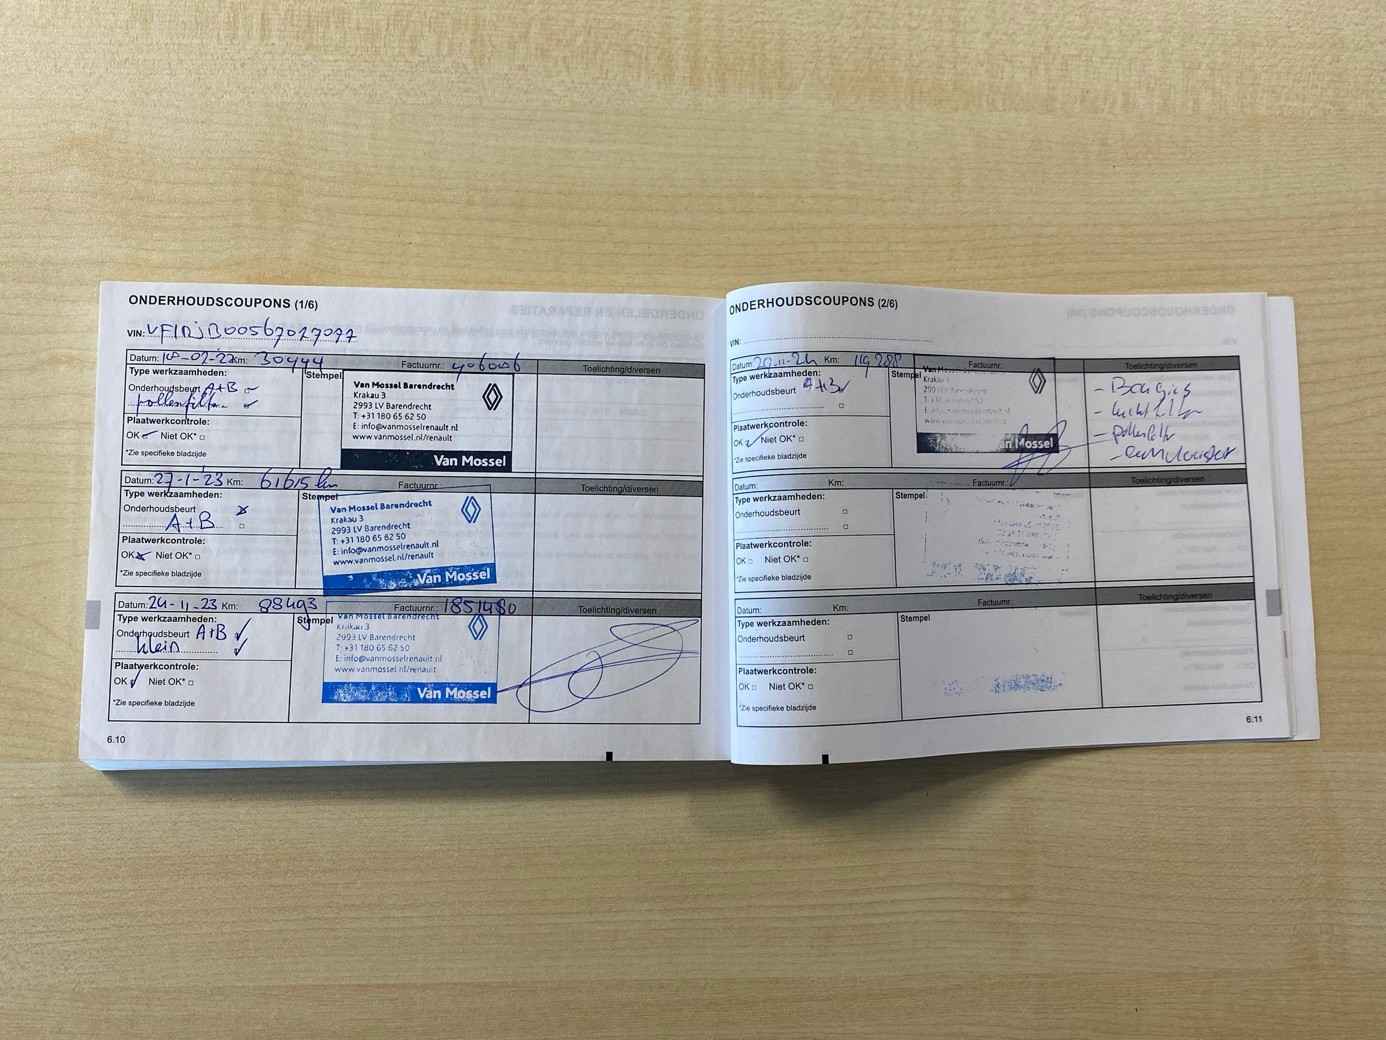 ONDERHOUDSCOUPONS (1/6)
VIN:
Datum: Km: 30444 Factuurnr.: 406006 Toelichting/diversen
Type werkzaamheden:
Stempel
Onderhoudsbeurt A+B
pollenfilter
Plaatwerkcontrole:
OK Niet OK*
*Zie specifieke bladzijde
Van Mossel Barendrecht
Krakau 3
2993 LV Barendrecht
T: +31 180 65 62 50
E: info@vanmosselrenault.nl
www.vanmossel.nl/renault
Van Mossel
Datum: 27-1-'23 Km: 61615 km Factuurnr.: Toelichting/diversen
Type werkzaamheden:
Stempel
Onderhoudsbeurt
A+B
Plaatwerkcontrole:
OK Niet OK*
*Zie specifieke bladzijde
Van Mossel Barendrecht
Krakau 3
2993 LV Barendrecht
T: +31 180 65 62 50
E: info@vanmosselrenault.nl
www.vanmossel.nl/renault
Van Mossel
Datum: 24-11-23 Km: 88493 Factuurnr.: 1851480 Toelichting/diversen
Type werkzaamheden:
Stempel
Onderhoudsbeurt A+B
klein
Plaatwerkcontrole:
OK Niet OK*
*Zie specifieke bladzijde
Van Mossel Barendrecht
Krakau 3
2993 LV Barendrecht
T: +31 180 65 62 50
E: info@vanmosselrenault.nl
www.vanmossel.nl/renault
Van Mossel
6.10
ONDERHOUDSCOUPONS (2/6)
VIN:
Datum: 20-11-24 Km: 119288 Factuurnr.: Toelichting/diversen
Type werkzaamheden:
Stempel
Onderhoudsbeurt A+B
Plaatwerkcontrole:
OK Niet OK*
*Zie specifieke bladzijde
Van Mossel
Krakau
Mossel
- Bougies
- luchtfilter
- pollenfilter
Datum: Km: Factuurnr.: Toelichting/diversen
Type werkzaamheden:
Stempel
Onderhoudsbeurt
Plaatwerkcontrole:
OK Niet OK*
*Zie specifieke bladzijde
Datum: Km: Factuurnr.: Toelichting/diversen
Type werkzaamheden:
Stempel
Onderhoudsbeurt
Plaatwerkcontrole:
OK Niet OK*
*Zie specifieke bladzijde
6.11